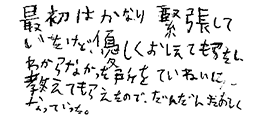 最初はかなり緊張して
いたけど、優しくおしえてもらえ
わからなかった所をていねいに
教えてもらえたので、だんだんたのしく
なっていった。